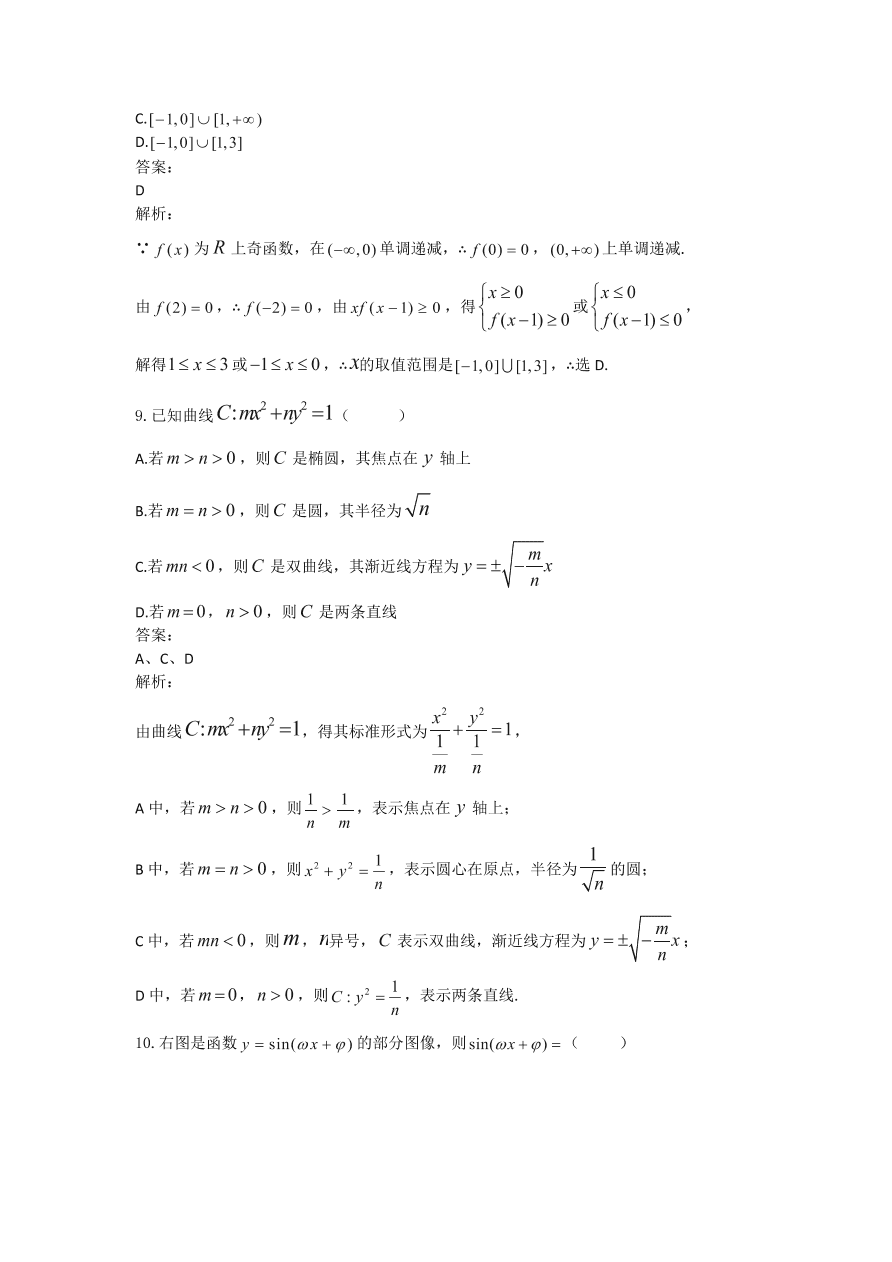 C.[−1,0]∪[1,+∞)
D.[−1,0]∪[1,3]
答案：
D
解析：
∵ f(x) 为 R 上奇函数，在 (−∞,0) 单调递减，∴ f(0) = 0，(0,+∞) 上单调递减.
由 f(2) = 0，∴ f(−2) = 0，由 xf(x−1) ≥ 0，得 {x ≥ 0, f(x−1) ≥ 0 或 {x ≤ 0, f(x−1) ≤ 0，
解得 1 ≤ x ≤ 3 或 −1 ≤ x ≤ 0，∴ x的取值范围是 [−1,0]∪[1,3]，∴选 D.
9. 已知曲线 C:mx²+ny²=1（ ）
A.若 m > n > 0，则 C 是椭圆，其焦点在 y 轴上
B.若 m = n > 0，则 C 是圆，其半径为 √n
C.若 mn < 0，则 C 是双曲线，其渐近线方程为 y = ±√(−m/n)x
D.若 m = 0，n > 0，则 C 是两条直线
答案：
A、C、D
解析：
由曲线 C:mx²+ny²=1，得其标准形式为 x²/(1/m) + y²/(1/n) = 1，
A 中，若 m > n > 0，则 1/n > 1/m，表示焦点在 y 轴上；
B 中，若 m = n > 0，则 x² + y² = 1/n，表示圆心在原点，半径为 1/√n 的圆；
C 中，若 mn < 0，则 m，n异号，C 表示双曲线，渐近线方程为 y = ±√(−m/n)x；
D 中，若 m = 0，n > 0，则 C : y² = 1/n，表示两条直线.
10. 右图是函数 y = sin(ωx + φ) 的部分图像，则 sin(ωx + φ) =（ ）